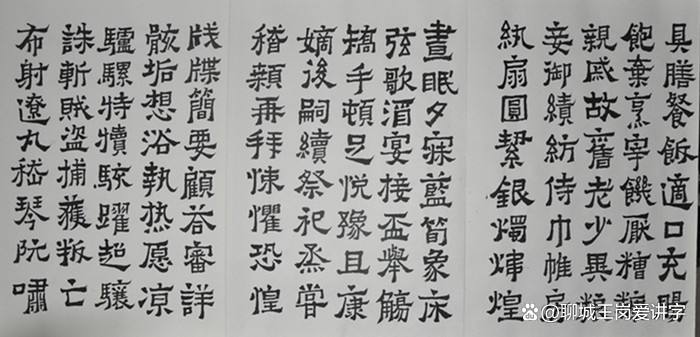 具膳餐飯適口充腸
飽棄烹宰饑厭糟糠
親戚故舊老少異糧
妾御績紡侍巾帷房
紈扇圓絜銀燭煒煌
晝眠夕寐藍筍象床
弦歌酒宴接盃舉觴
矯手頓足悅豫且康
嫡後嗣續祭祀烝嘗
稽顙再拜悚懼恐惶
牋牒簡要顧答審詳
骸垢想浴執热愿凉
驢騾特犢駭躍超驤
誅斬賊盜捕獲叛亡
布射遼丸嵇琴阮嘯
@聊城王岗爱讲字